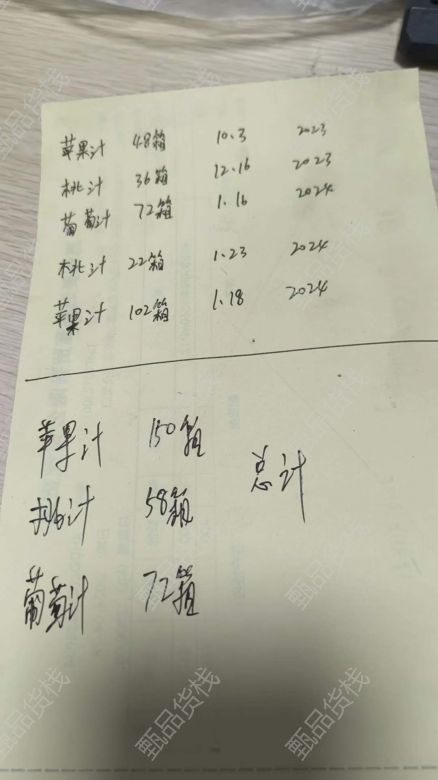 苹果汁 48箱 10.3 2023
桃汁 36箱 12.16 2023
葡萄汁 72箱 1.16 2024
桃汁 22箱 1.23 2024
苹果汁 102箱 1.18 2024
苹果汁 150箱
总计
桃汁 58箱
葡萄汁 72箱
甄品货栈